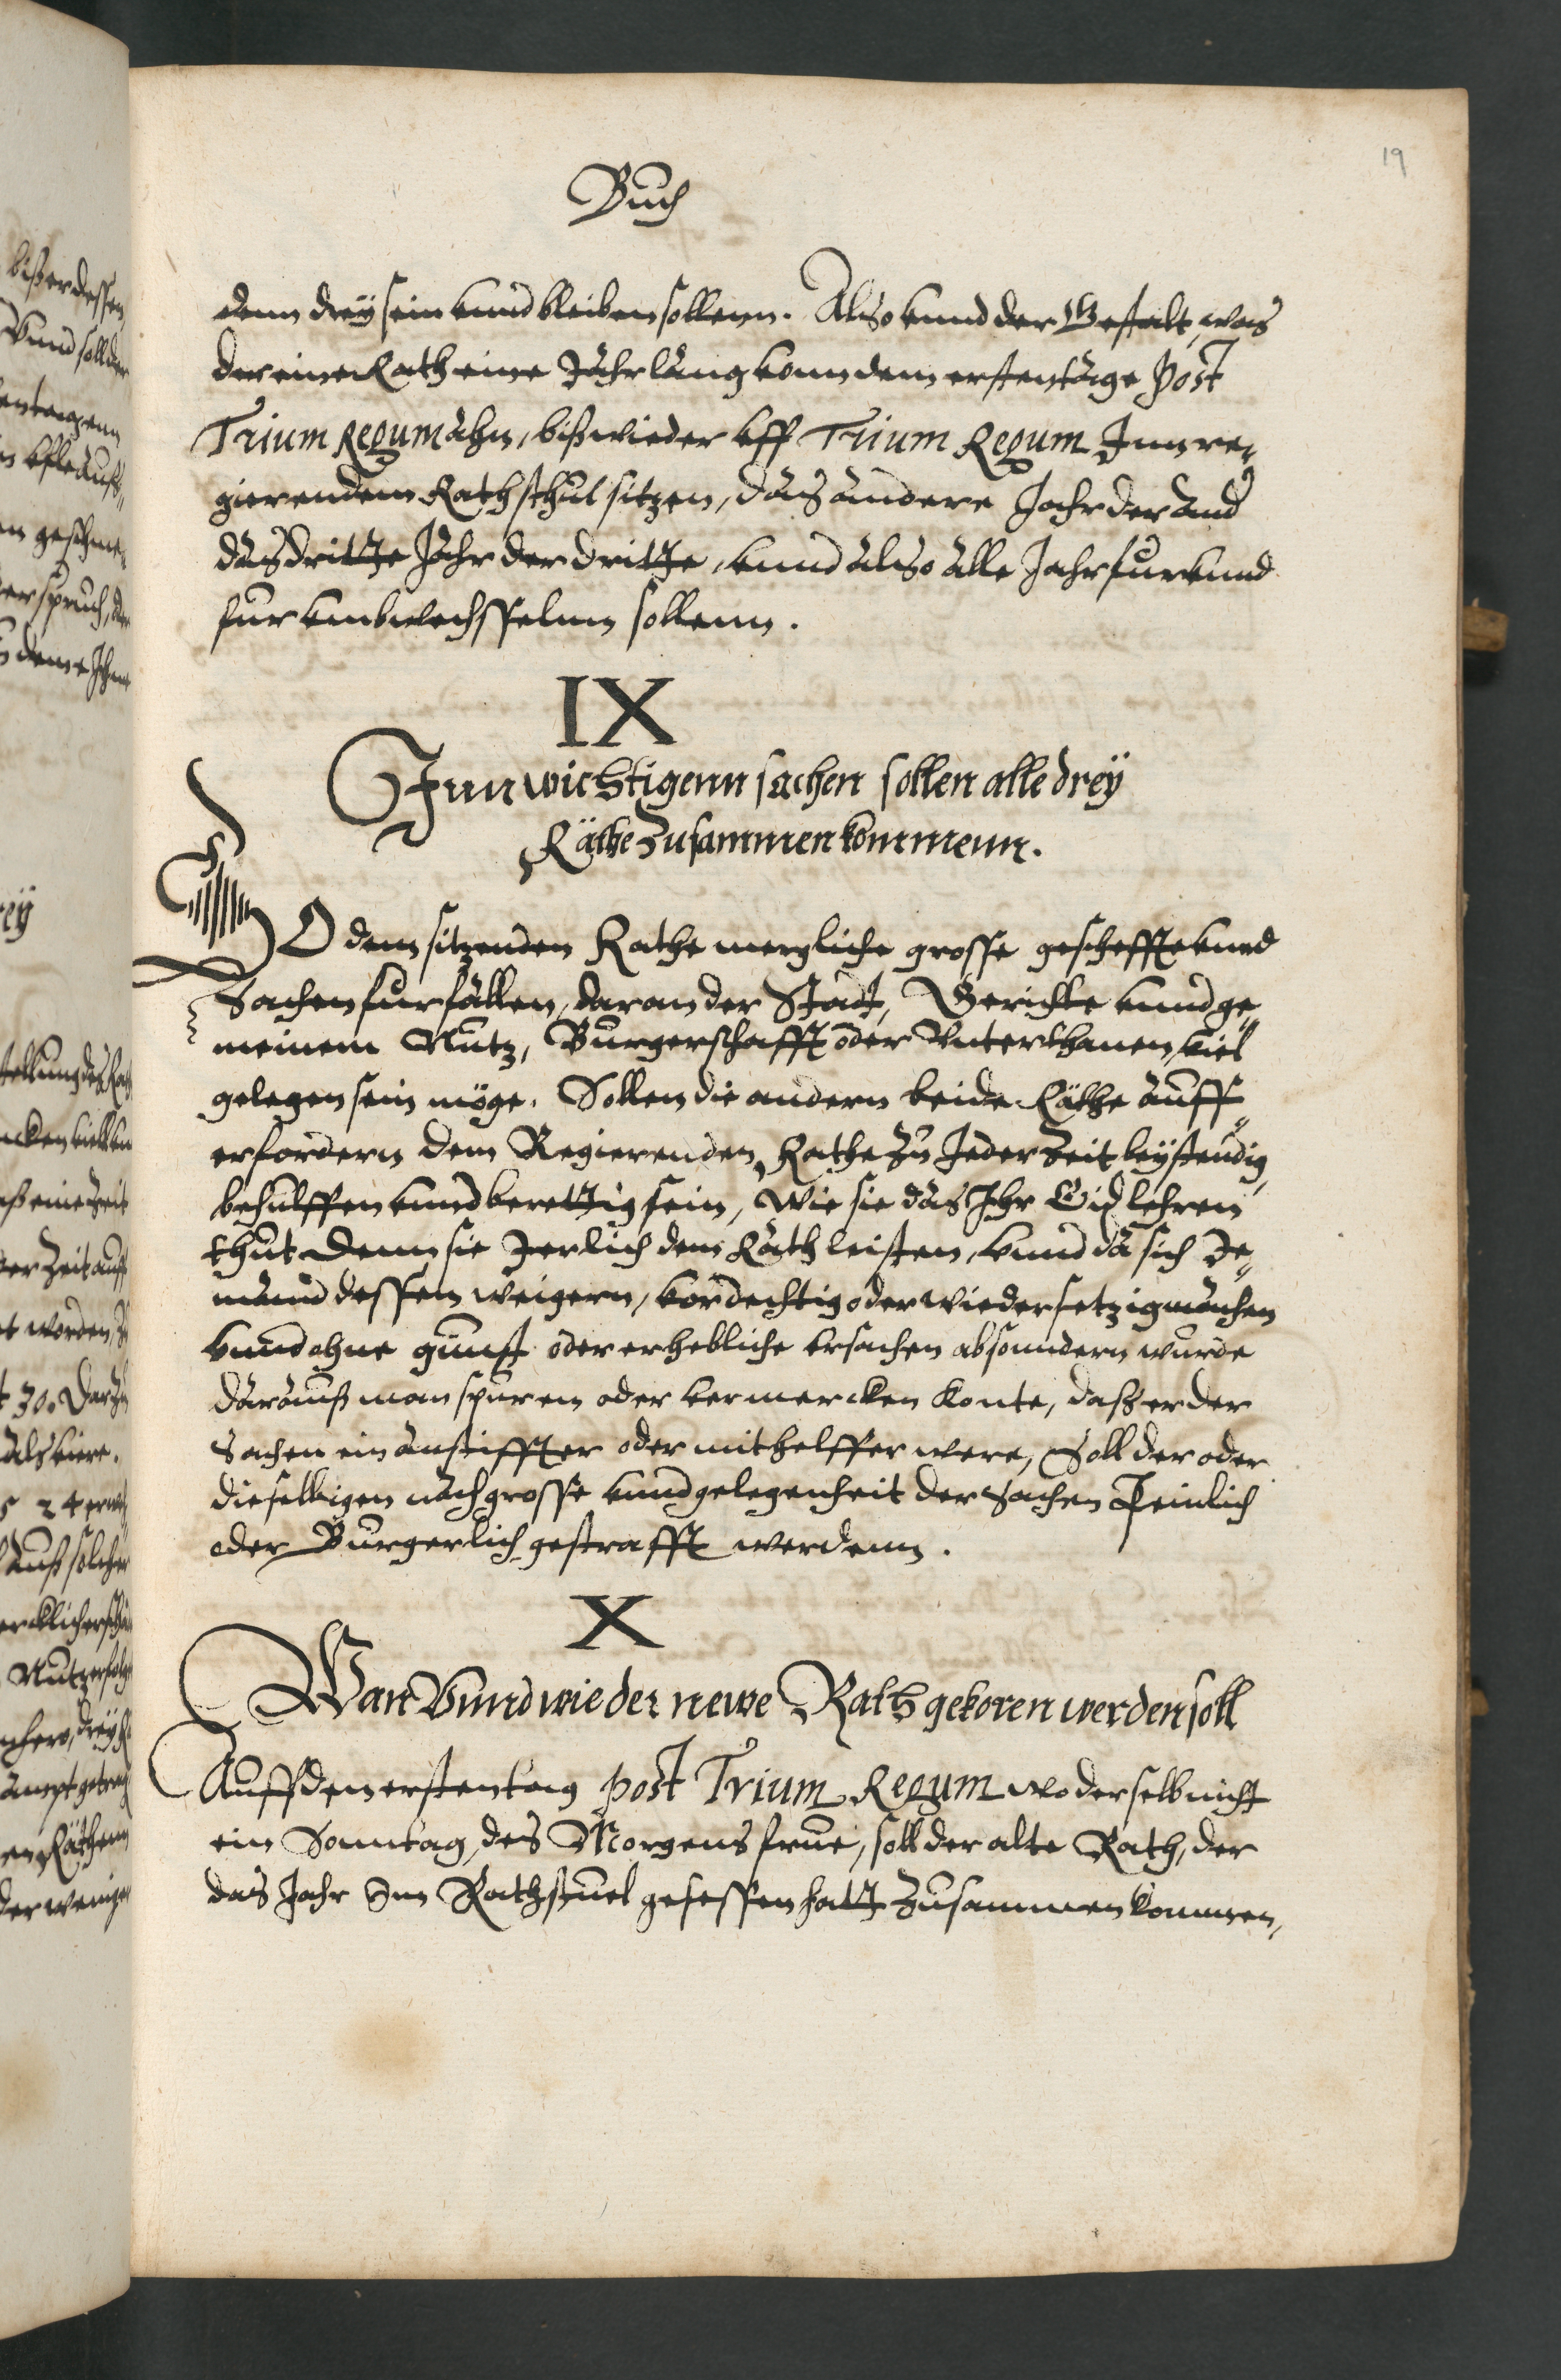 19
Buch
denn dreÿ sein vnnd bleiben sollenn. Also vnnd der Gestalt, was
der eine Rath eine Jahr lang vonn dem ersten tage Post
Trium Regum ahn, biß wieder vff Trium Regum Inn re„
gierendem Rathsthul sitzen, das andere Jahr der and
das dritte Jahr der dritte, vnnd also alle Jahr fur vnnd
fur vmbwechsselnn sollenn.
IX
Inn wichtigenn sachen sollen alle dreÿ
Räthe Zusammen kommenn.
SO dem sitzenden Rathe mergliche grosse gescheffte vnnd
Sachen furfallen, daran der Stadt, Gerichte vnnd ge„
meinem Nutz, Burgerschafft oder Vnterthanen, viel
gelegen sein möge. Sollen die andern beide Räthe auff
erfordern dem Regierenden Rathe Zu Jeder Zeit beÿstendig
behulffen vnnd berettig sein, Wie sie das Ihr Eid lehren
thut Denn sie Jerlich dem Rath leisten, vnnd da sich Je„
mand dessen weigern, vordechtig oder wiedersetzig machen
vnnd ohne gunst oder erhebliche vrsachen absonndern wurde
darauß man spuren oder vermercken konte, daß er der
Sachen ein anstiffter oder mithelffer were, Soll der oder
dieselbigen nach grosse vnnd gelegenheit der Sachen Peinlich
oder Burgerlich gestrafft werdenn.
X
Wan Vnnd wie der newe Rath gekoren werden soll
Auff den ersten tag post Trium Regum wo derselb nicht
ein Sonntag, des Morgens frue, soll der alte Rath, der
das Jahr Im Rathstuel gesessen hatt Zusammen kommen,